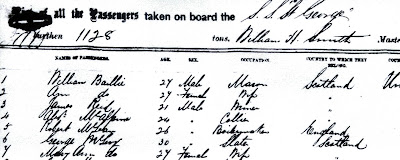 of all the Passengers taken on board the S.S. St George
Burthen 1128 tons. William H. Smith Mast
NAMES OF PASSENGERS. AGE. SEX. OCCUPATION. COUNTRY TO WHICH THEY BELONG.
1 William Baillie 27 Male Mason Scotland Un
2 Ann do 27 Female Wife
3 James Reid 21 Male Miner
4 24 Collier
5 Robert 26 Boilermaker England
6 George 30 Slater Scotland
7 Mary Ann do 27 Female Wife